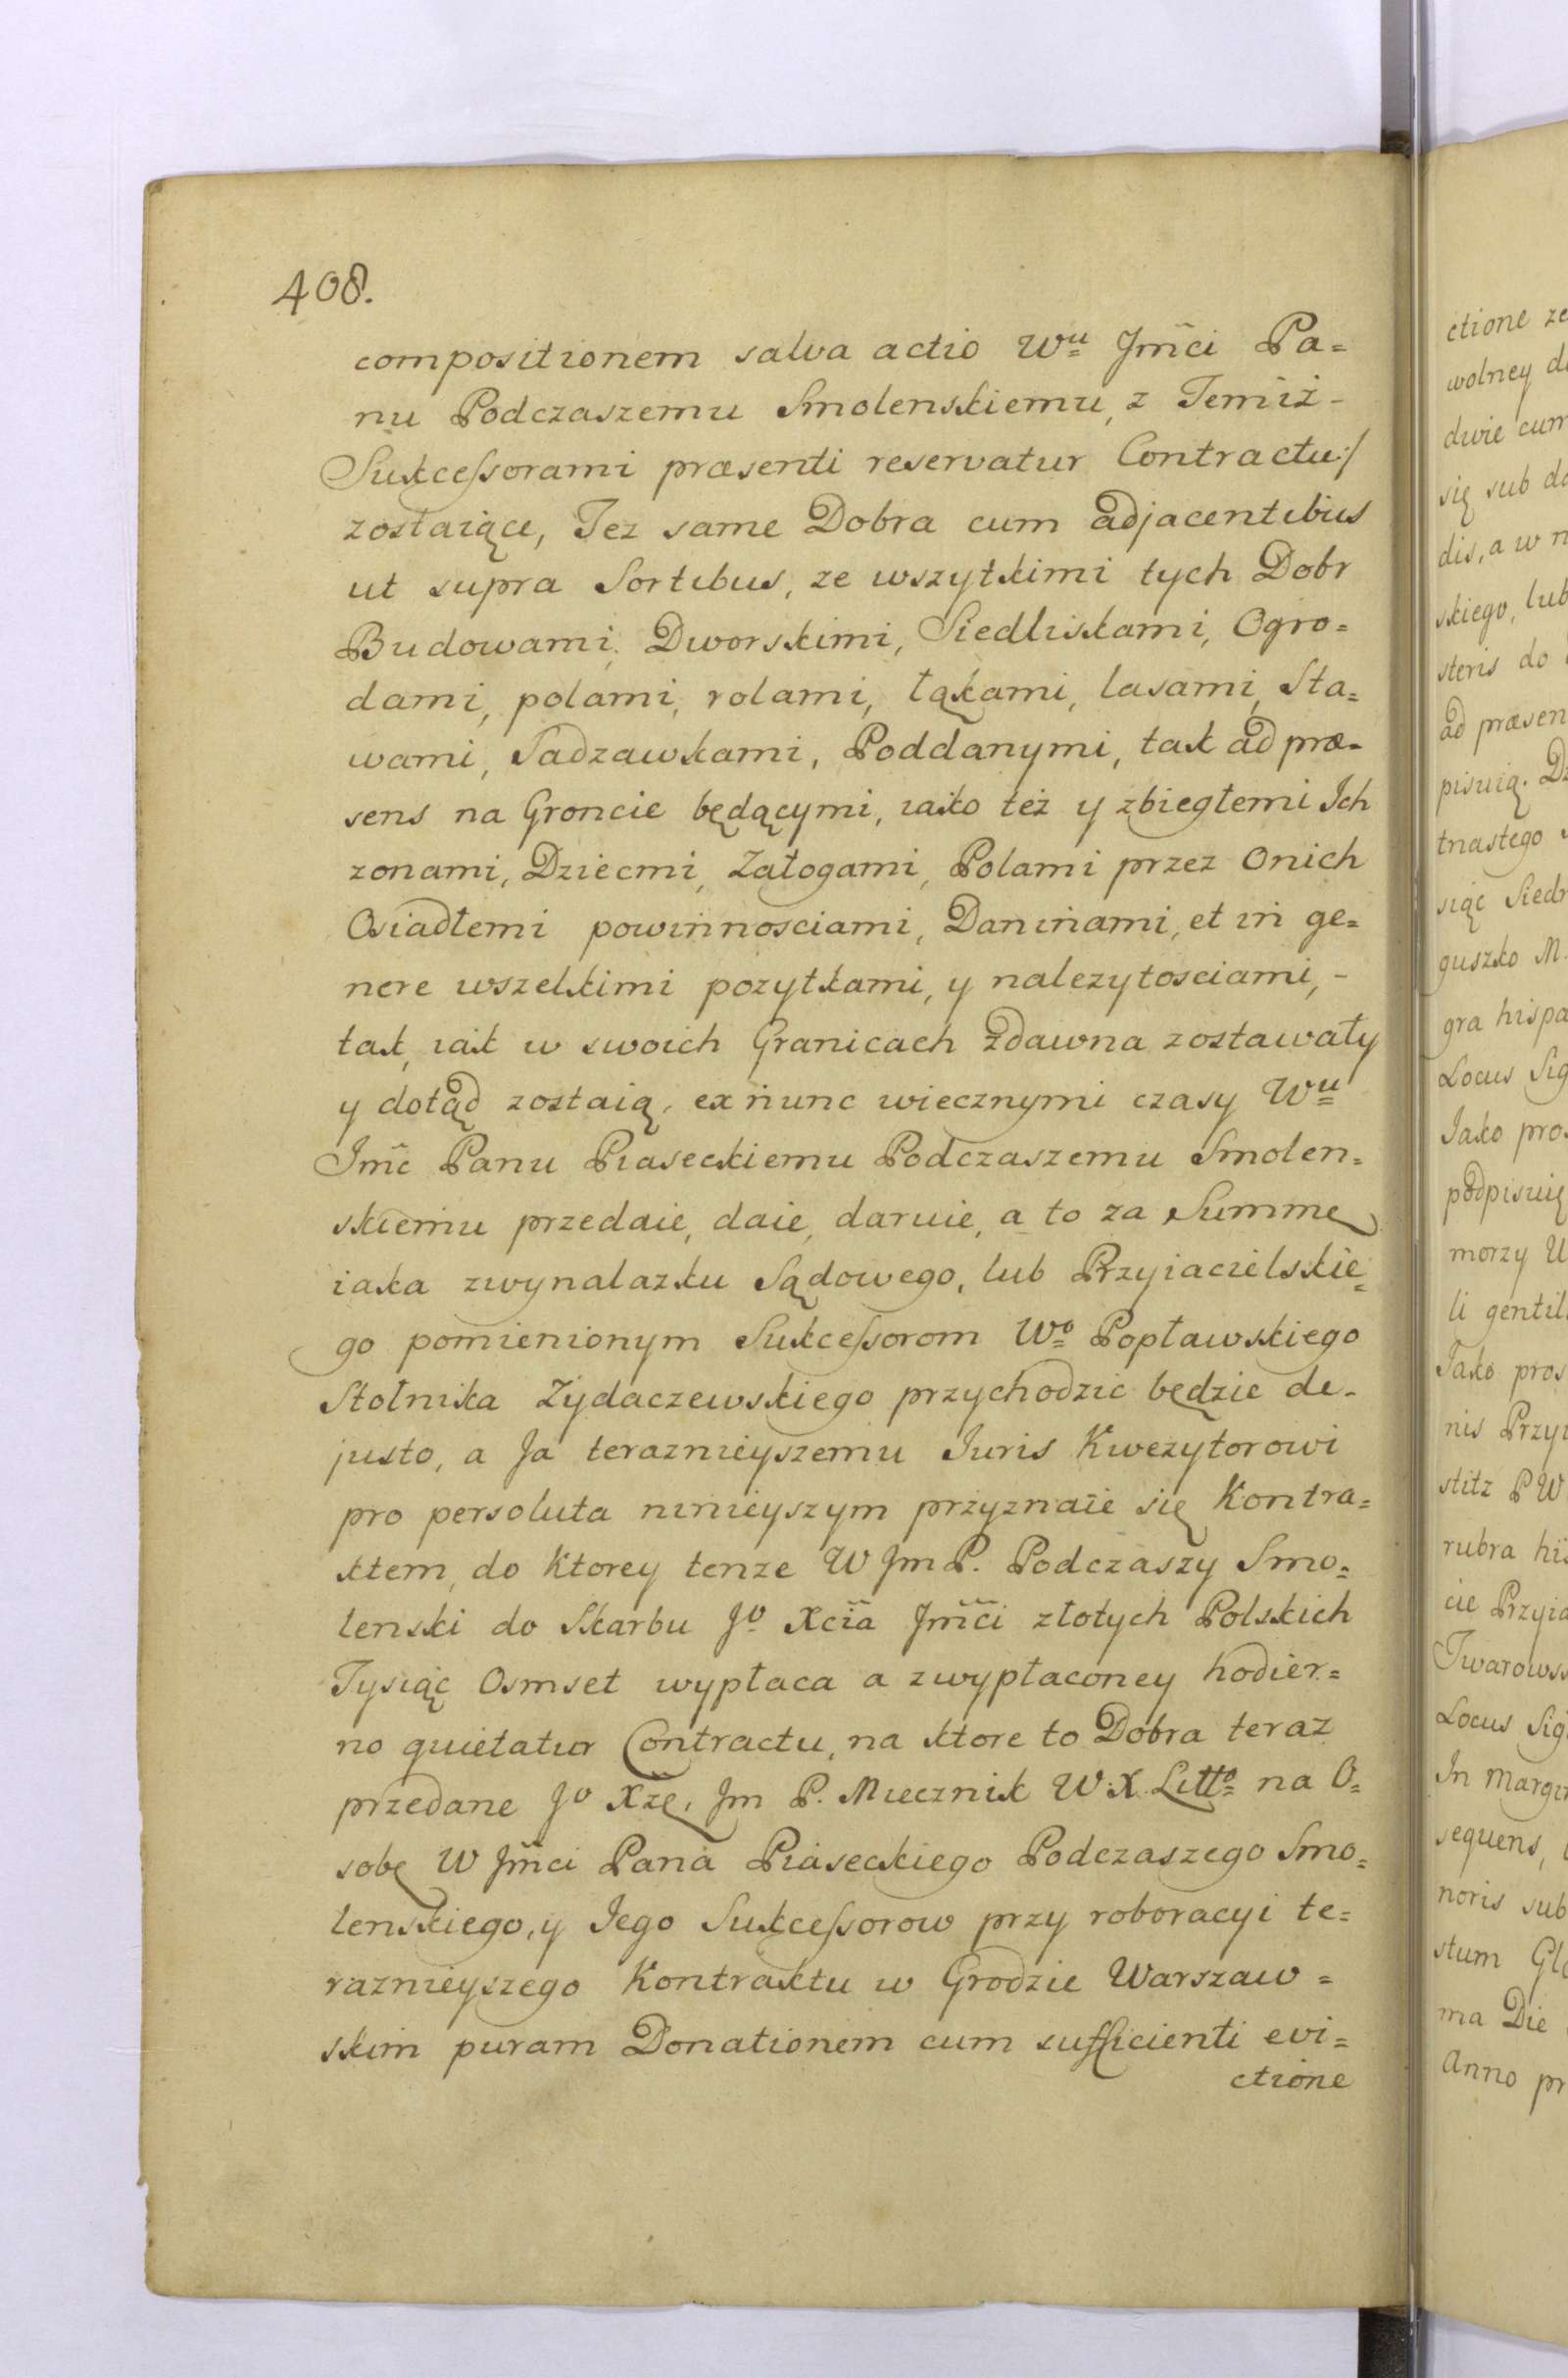 408.
compositionem salva actio Wu Jmći Pa=
nu Podczaszemu Smolenskiemu, z Temiż -
Sukcessorami præsenti reservatur Contractu:/
zostaiące, Tez same Dobra cum adjacentibus
ut supra Sortibus, ze wszytkimi tych Dobr
Budowami, Dworskimi, Siedliskami, Ogro=
dami, polami, rolami, łąkami, lasami, Sta=
wami, Sadzawkami, Poddanymi, tak ad præ=
sens na Groncie będącymi, iako też y zbiegłemi Ich
zonami, Dziecmi, Załogami, Polami przez Onich
Osiadłemi powinnosciami, Daninami, et in ge=
nere wszelkimi pozytkami, y nalezytosciami, -
tak, iak w swoich Granicach zdawna zostawały
y dotąd zostaią, ex nunc wiecznymi czasy Wu
Jmć Panu Piaseckiemu Podczaszemu Smolen=
skiemu przedaie, daie, daruie, a to za Summę
iaka zwynalazku Sądowego, lub Przyiacielskie=
go pomienionym Sukcessorom Wo Popławskiego
Stolnika Zydaczewskiego przychodzic będzie de-
justo, a Ja teraznieyszemu Iuris Kwezytorowi
pro persoluta ninieyszym przyznaie się Kontra=
ktem, do Ktorey tenze W Jm P. Podczaszy Smo=
lenski do Skarbu Jo Xcia Jmći złotych Polskich
Tysiąc Osmset wypłaca a zwypłaconey hodier=
no quietatur Contractu, na ktore to Dobra teraz
przedane Jo Xze, Jm P. Miecznik W. X. Litto na O=
sobę W Jmći Pana Piaseckiego Podczaszego Smo=
lenskiego, y Iego Sukcessorow przy roboracyi te=
raznieyszego Kontraktu w Grodzie Warszaw=
skim puram Donationem cum sufficienti evi=
ctione
ctione
wolney
dwie cum
się sub
dis, a w
skiego, lub
steris do
ad præsen
pisuią.
tnastego
siąc Sied
guszko M.
gra hispa
Locus Sig
Jako pro
podpisuię
morzy
li gentil
Jako pros
nis Przy
stitz P W
rubra
cie Przyia
Twarows
Locus Sig
In margi
sequens,
noris sub
stum
ma Die
Anno pr